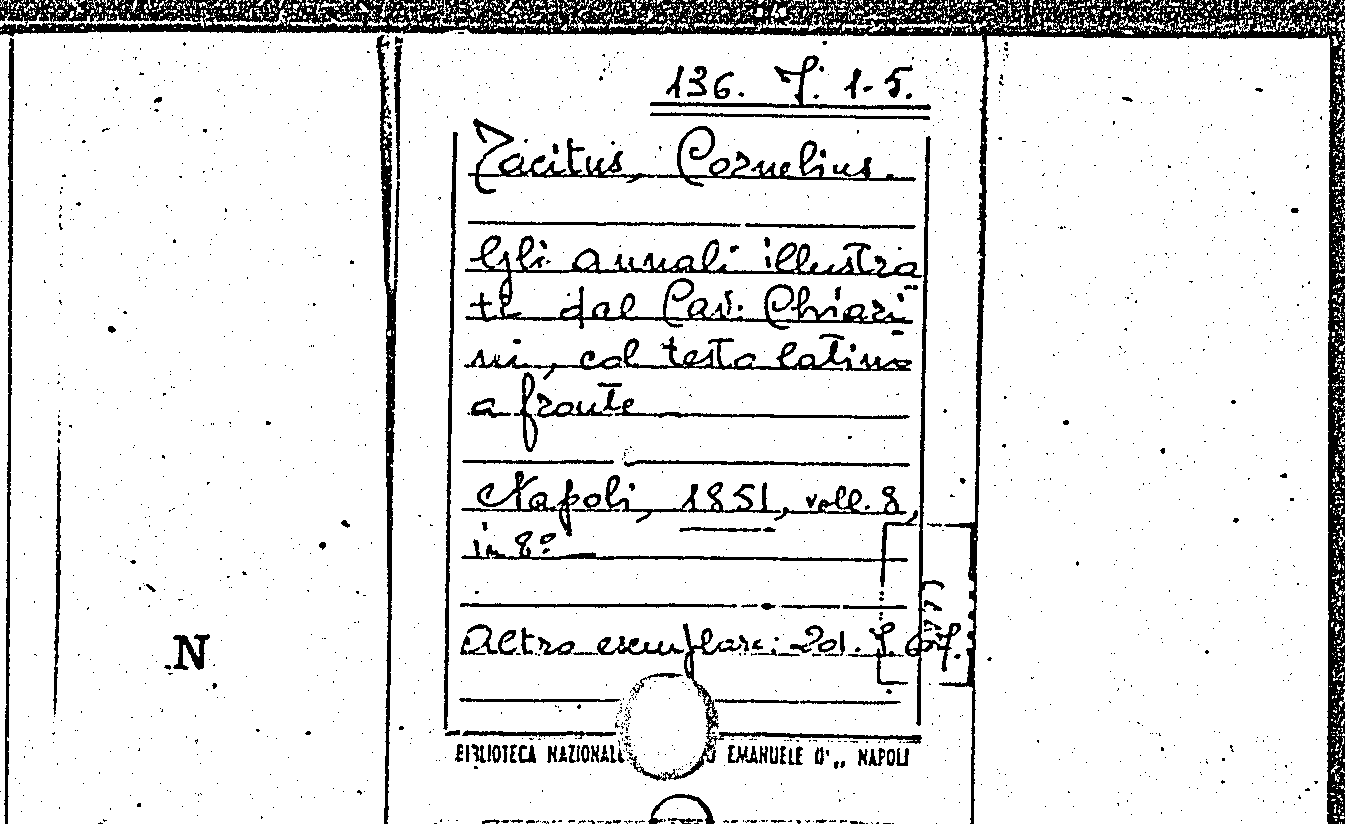 136. J. 1-5.
Tacitus, Cornelius.
Gli annali illustra
ti dal Cav. Chiari
ni, col testo latino
a fronte
Napoli, 1851, voll. 8,
in 8º
Altro esemplare: 201. J.
N
BIBLIOTECA NAZIONALE EMANUELE NAPOLI